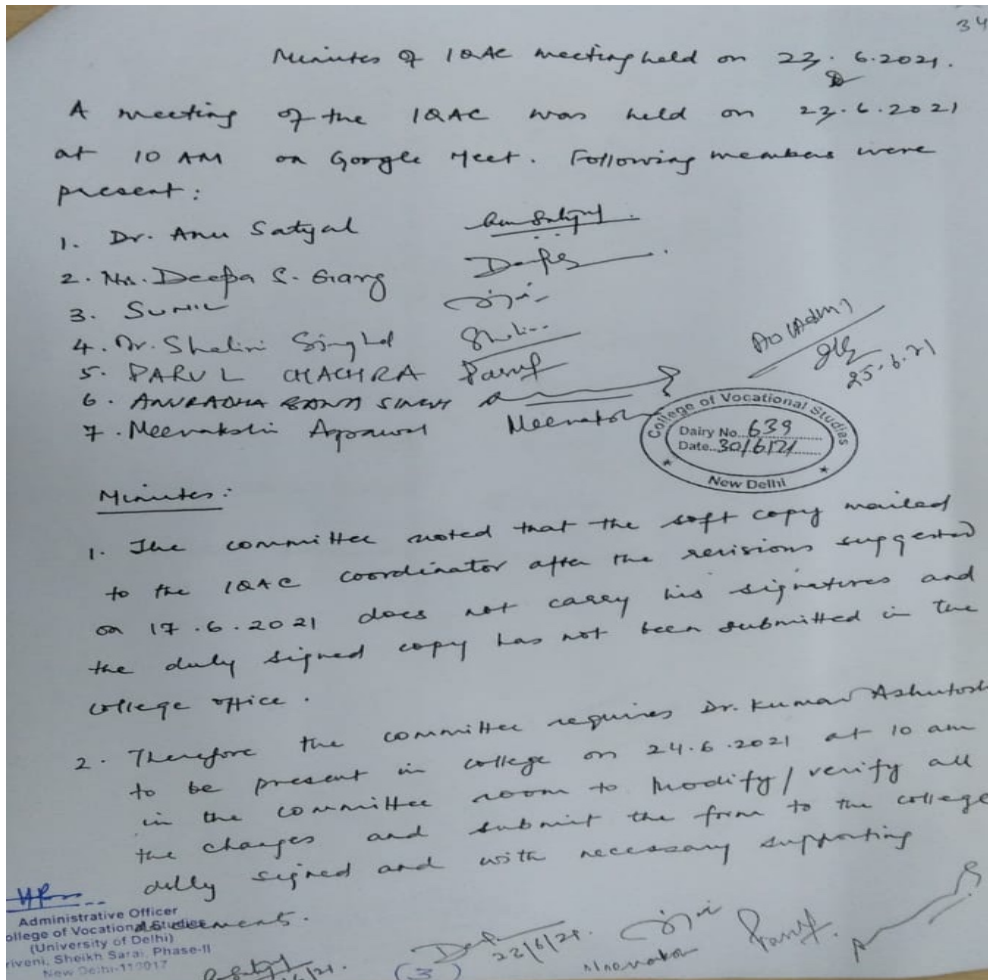 34
Minutes of IQAC meeting held on 23.6.2021.
A meeting of the IQAC was held on 23.6.2021
at 10 AM on Google Meet. Following members were
present:
1. Dr. Anu Satyal
2. Ms. Deepa S. Garg
3. SUNIL
4. Dr. Shalini Singhal
5. PARUL CHACHRA Parul
6. ANURADHA SINGH
7. Meenakshi Agrawal
AO (Adm)
25.6.21
College of Vocational Studies
Dairy No. 639
Date. 30/6/21
New Delhi
Minutes:
1. The committee noted that the soft copy mailed
to the IQAC coordinator after the revisions suggested
on 17.6.2021 does not carry his signatures and
the duly signed copy has not been submitted in the
college office.
2. Therefore the committee requires Dr. Kumar Ashutosh
to be present in college on 24.6.2021 at 10 am
in the committee room to modify/verify all
the changes and submit the form to the college
dully signed and with necessary supporting
Administrative Officer
ollege of Vocational Studies
(University of Delhi)
riveni, Sheikh Sarai, Phase-II
New Delhi-110017
23/6/21.
(3)